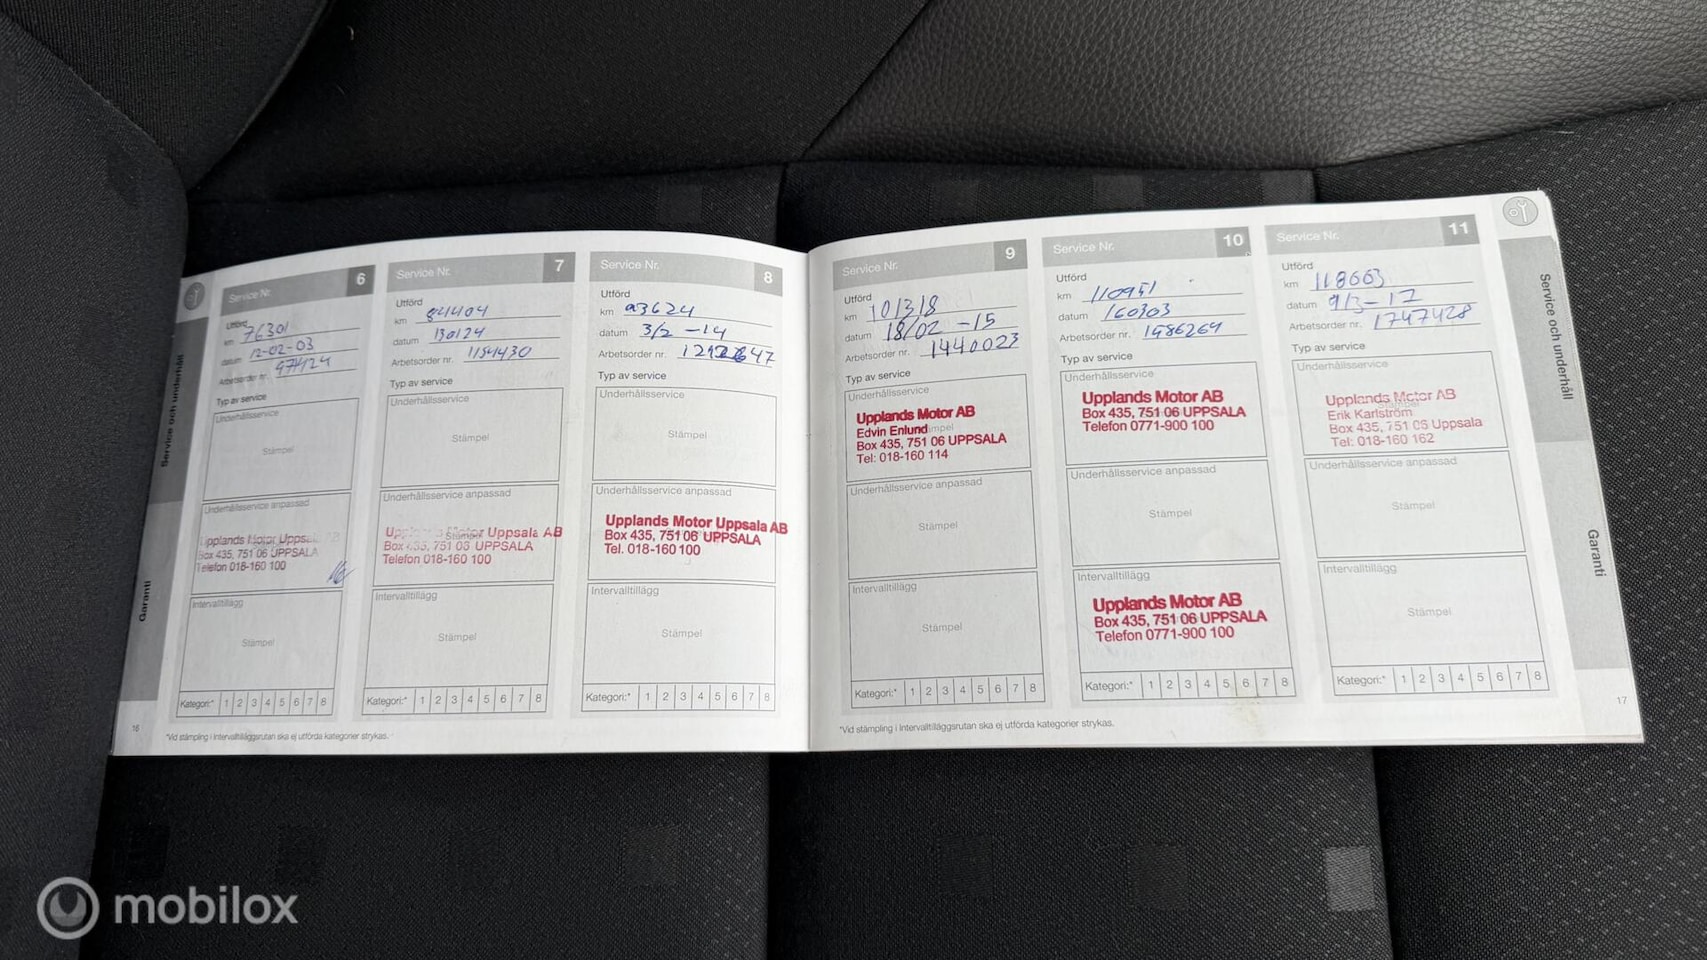 Service och underhåll
Garanti
16
Service Nr. 6
Utförd
km 76301
datum 12-02-03
Arbetsorder nr. 974124
Typ av service
Underhållsservice
Stämpel
Underhållsservice anpassad
Upplands Motor Uppsala AB
Box 435, 751 06 UPPSALA
Telefon 018-160 100
Intervalltillägg
Stämpel
Kategori:* 1 2 3 4 5 6 7 8
*Vid stämpling i Intervalltilläggsrutan ska ej utförda kategorier strykas.
Service Nr. 7
Utförd
km 84404
datum 130124
Arbetsorder nr. 1154430
Typ av service
Underhållsservice
Stämpel
Underhållsservice anpassad
Stämpel
Upplands Motor Uppsala AB
Box 435, 751 06 UPPSALA
Telefon 018-160 100
Intervalltillägg
Stämpel
Kategori:* 1 2 3 4 5 6 7 8
Service Nr. 8
Utförd
km 93624
datum 3/2 -14
Arbetsorder nr.
Typ av service
Underhållsservice
Stämpel
Underhållsservice anpassad
Upplands Motor Uppsala AB
Box 435, 751 06 UPPSALA
Tel. 018-160 100
Intervalltillägg
Stämpel
Kategori:* 1 2 3 4 5 6 7 8
Service Nr. 9
Utförd
km 101318
datum 18/02 -15
Arbetsorder nr. 1440023
Typ av service
Underhållsservice
Upplands Motor AB
Edvin Enlund
Box 435, 751 06 UPPSALA
Tel: 018-160 114
Underhållsservice anpassad
Stämpel
Intervalltillägg
Stämpel
Kategori:* 1 2 3 4 5 6 7 8
*Vid stämpling i Intervalltilläggsrutan ska ej utförda kategorier strykas.
Service Nr. 10
Utförd
km 110951
datum 160303
Arbetsorder nr. 1586264
Typ av service
Underhållsservice
Upplands Motor AB
Box 435, 751 06 UPPSALA
Telefon 0771-900 100
Underhållsservice anpassad
Stämpel
Intervalltillägg
Upplands Motor AB
Box 435, 751 06 UPPSALA
Telefon 0771-900 100
Kategori:* 1 2 3 4 5 6 7 8
Service Nr. 11
Utförd
km 118663
datum 9/3-17
Arbetsorder nr. 1747428
Typ av service
Underhållsservice
Stämpel
Upplands Motor AB
Erik Karlström
Box 435, 751 06 Uppsala
Tel: 018-160 162
Underhållsservice anpassad
Stämpel
Intervalltillägg
Stämpel
Kategori:* 1 2 3 4 5 6 7 8
Service och underhåll
Garanti
17
mobilox